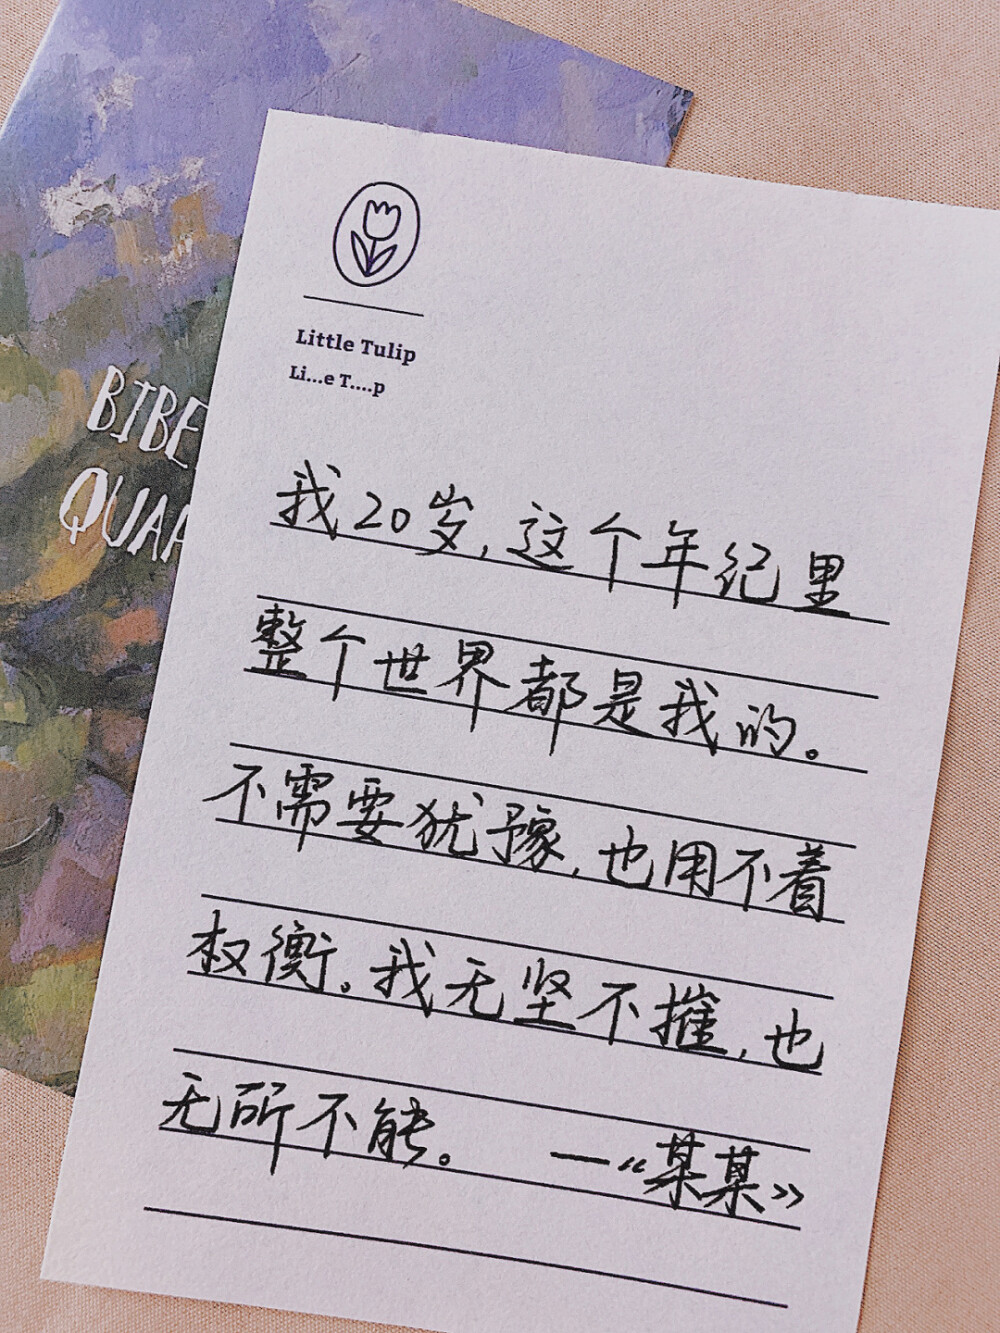 BIBE
QUAR
Little Tulip
Li...e T....p
我20岁,这个年纪里
整个世界都是我的。
不需要犹豫,也用不着
权衡。我无坚不摧,也
无所不能。 —《某某》